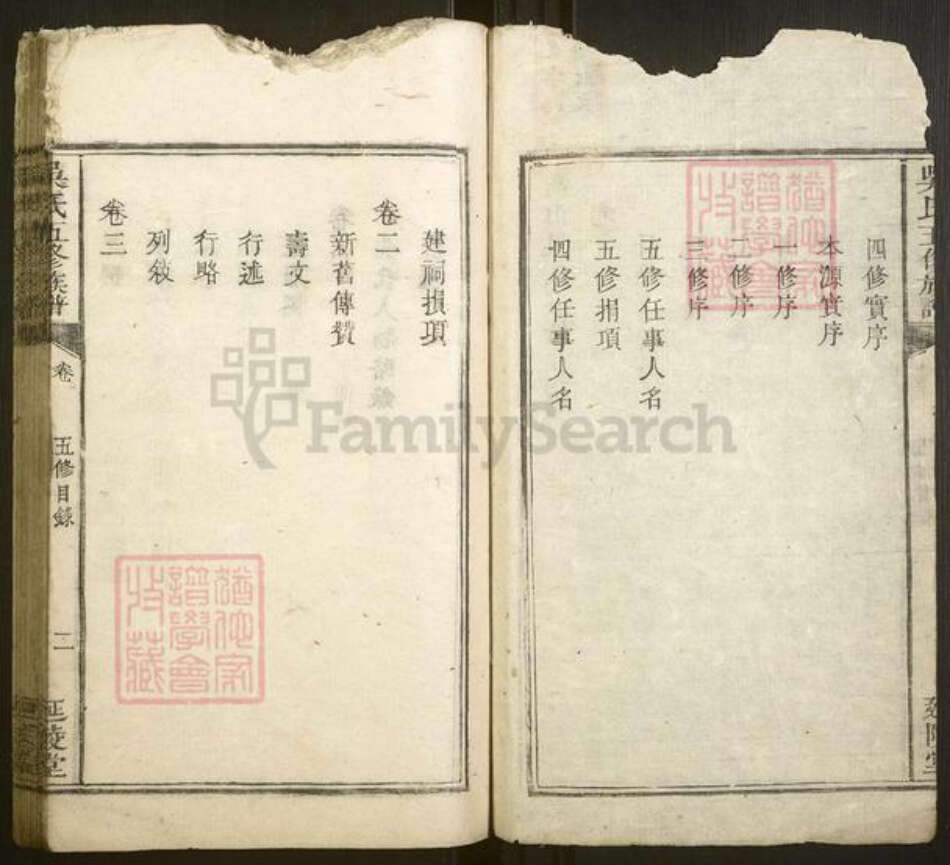 四修實序
本源實序
一修序
二修序
三修序
五修任事人名
五修捐項
四修任事人名
建祠損項
卷二
新舊傳贊
壽文
行述
行略
列敘
卷三
吳氏五修族譜
卷
五修目錄
二
延陵堂
吳氏五修族譜
延陵堂
猶他家
譜學會
收藏
猶他家
譜學會
收藏
FamilySearch